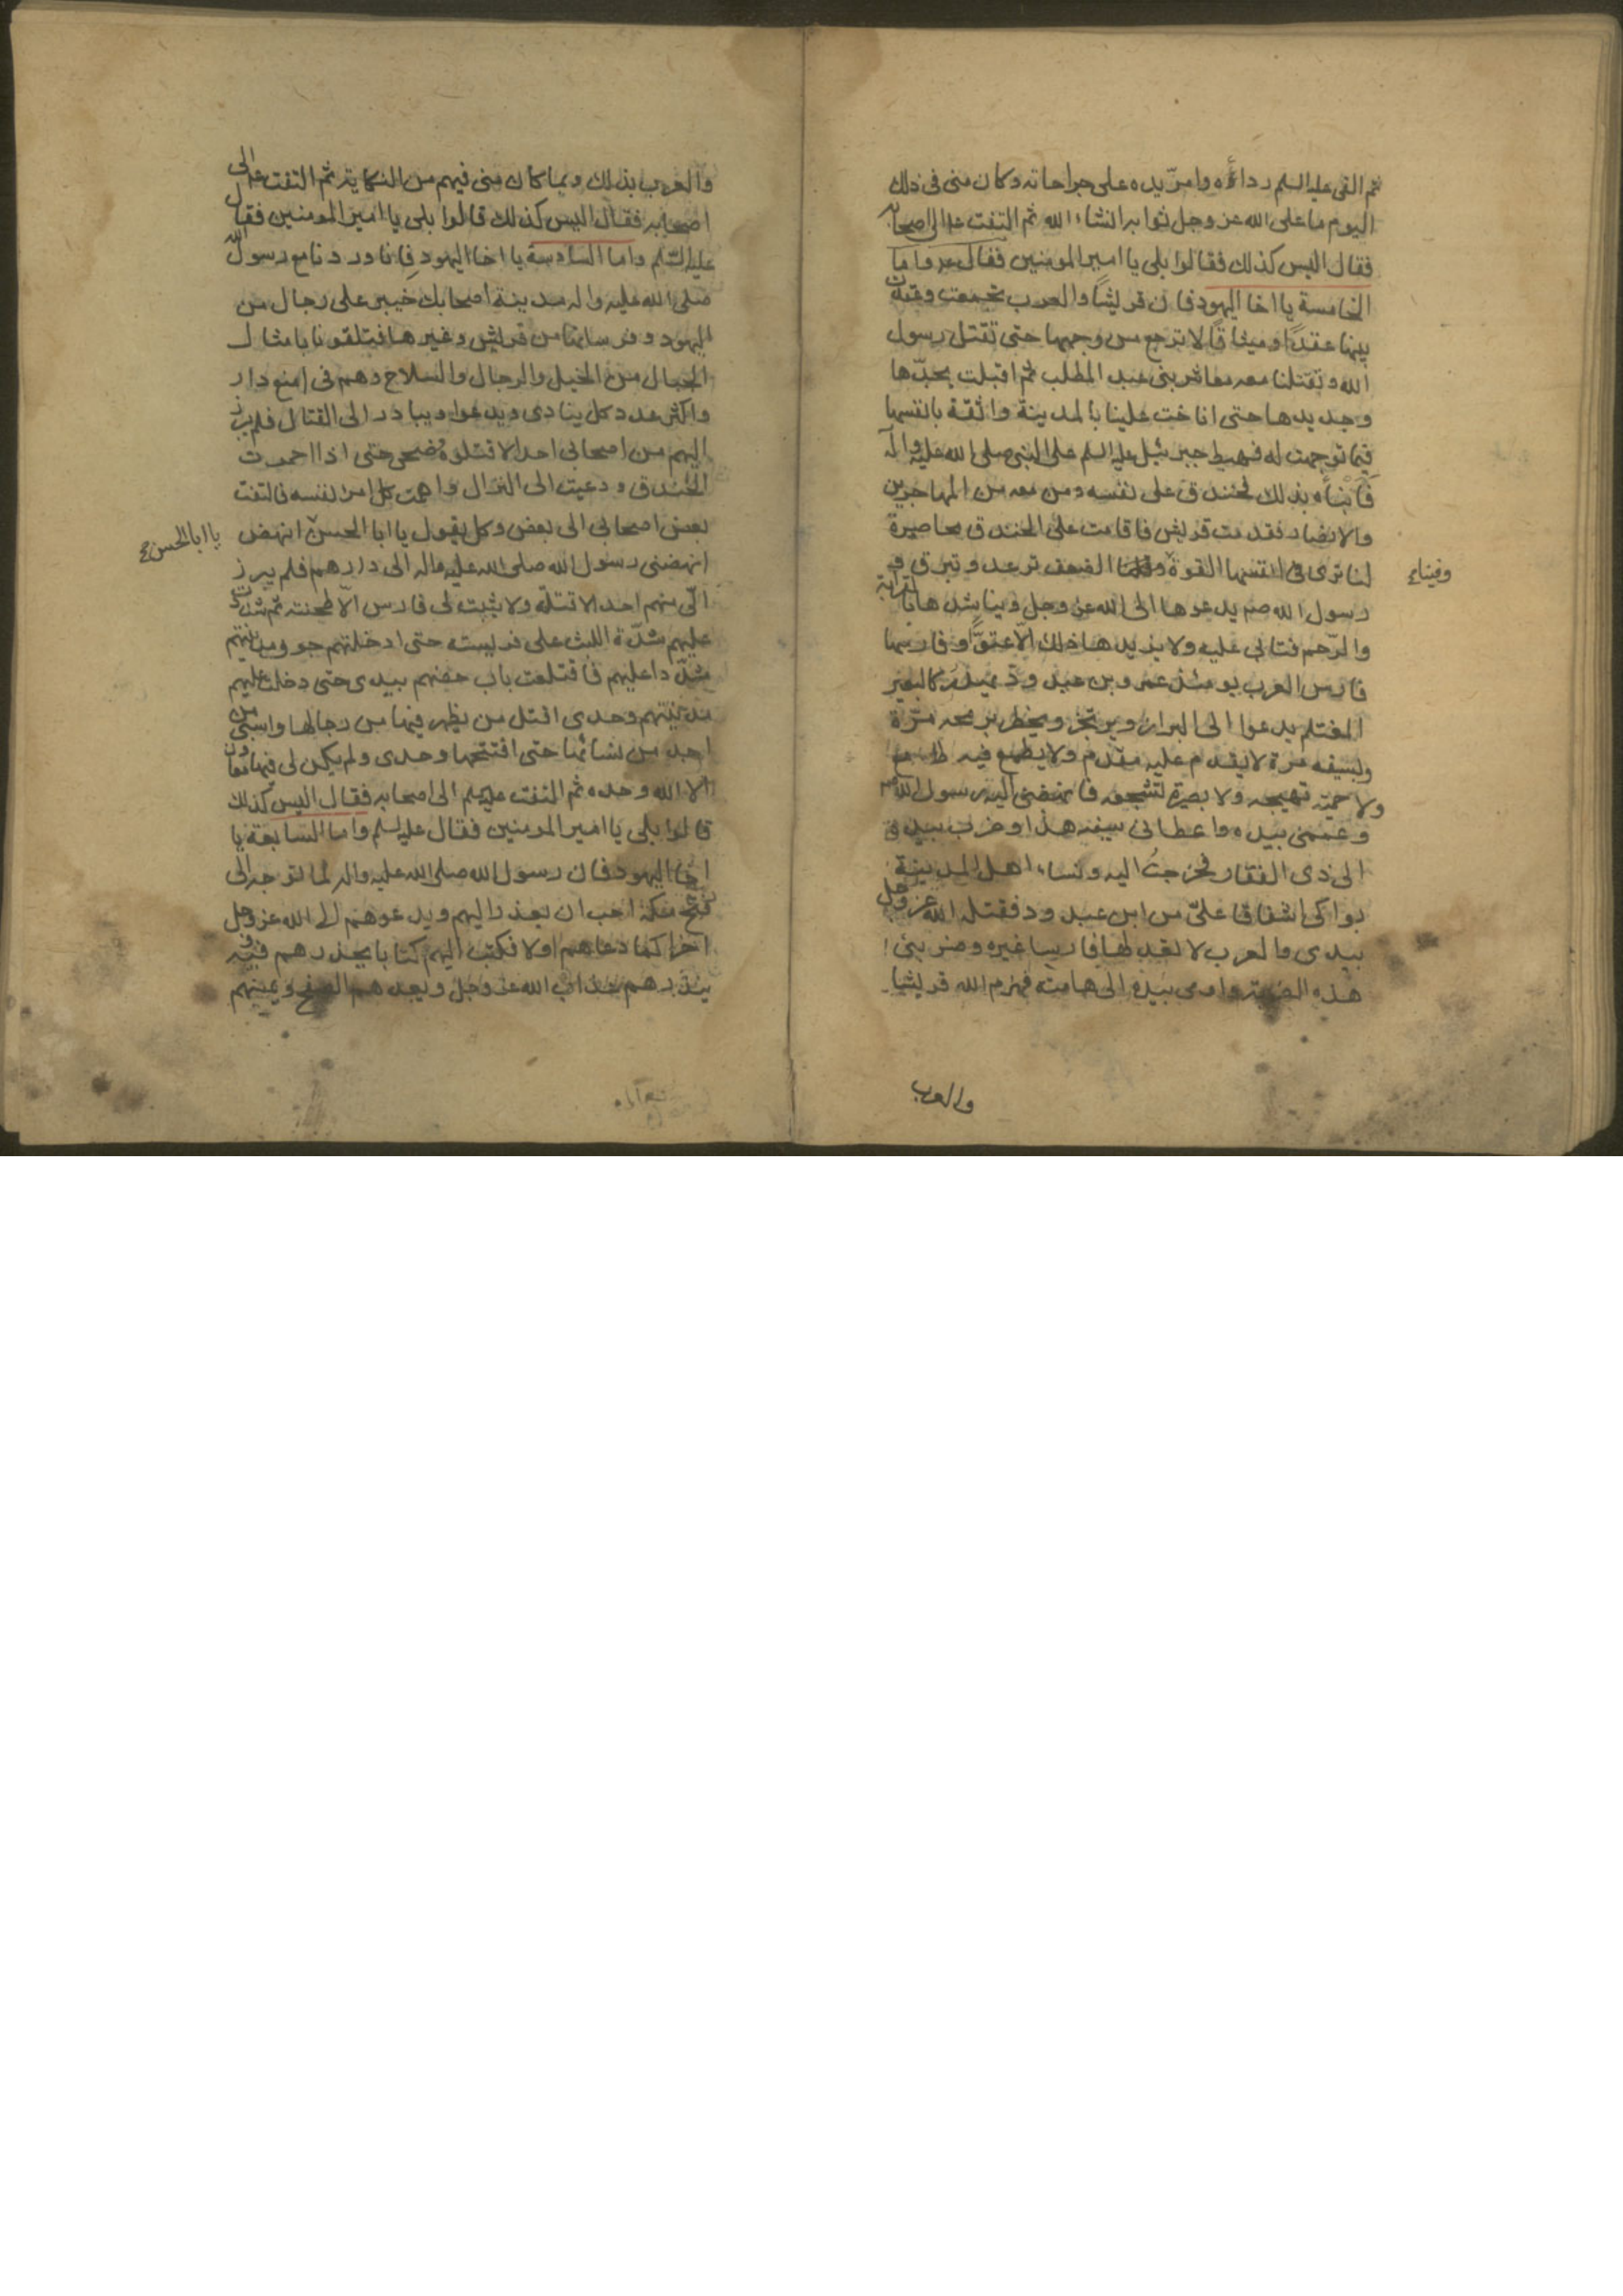 ثم القى عليه السلم رداءه وامرّ يده على جراحاته وكان منى فى ذلك
اليوم ما على الله عز وجل ثوابه انشاء الله ثم التفت عم الى اصحابه
فقال اليس كذلك فقالوا بلى يا امير المومنين فقال عم واما
الخامسة يا اخا اليهود فان قريشًا والعرب تجمعت وعقدت
بينها عقدًا وميثاقًا لا ترجع من وجهها حتى تقتل رسول
الله وتقتلنا معه معاشر بنى عبد المطلب ثم اقبلت بحدّها
وحديدها حتى اناخت علينا بالمدينة واثقة بانفسها
فيما توجهت له فهبط جبرئيل عليه السلم على النبى صلى الله عليه واله
فأنبأه بذلك فخندق على نفسه ومن معه من المهاجرين
والانصار فقدمت قريش فاقامت على الخندق محاصرة
لنا ترى فى انفسها القوة الضعف ترعد وتبرق و
وفينا
رسول الله صم يدعوها الى الله عز وجل ويناشدها بالقرابة
والرّحم فتابى عليه ولا يزيدها ذلك الّا عتوًّا وفارسها
فارس العرب يومئذ عمرو بن عبد ودّ يهدر كالبعير
المغتلم يدعوا الى البراز ويرتجز ويخطر برمحه مرّة
وبسيفه مرة لا يقدم عليه مقدم ولا يطمع فيه طامع
ولا حميّة تهيجه ولا بصيرة تشجعه فانهضنى اليه رسول الله ص
وعممنى بيده واعطانى سيفه هذا وضرب بيده
الى ذى الفقار فخرجتُ اليه ونساء اهل المدينة
بواكى اشفاقا علىّ من ابن عبد ود فقتله الله عز وجل
بيدى والعرب لا تعد لها فارسا غيره وضربنى
هذه الضربة واومى بيده الى هامته فهزم الله قريشا
والعرب
والعرب بذلك وبما كان منى فيهم من النكاية ثم التفت عم الى
اصحابه فقال اليس كذلك قالوا بلى يا امير المومنين فقال
عليه السّلم واما السادسة يا اخا اليهود فانا وردنا مع رسول الله
صلى الله عليه واله مدينة اصحابك خيبر على رجال من
اليهود وفرسانها من قريش وغيرها فتلقونا بامثال
الجبال من الخيل والرجال والسلاح وهم فى امنع دار
واكثر عدد كل ينادى ويدعوا ويبادر الى القتال فلم يبرز
اليهم من اصحابى احد الا قتلوه حتى اذا احمرت
الحدق ودعيت الى النزال واهمت كل امرئ نفسه فالتفت
بعض اصحابى الى بعض وكل يقول يا ابا الحسن انهض
يا ابا الحسن
انهضنى رسول الله صلى الله عليه واله الى دارهم فلم يبرز
الّى منهم احد الا قتلته ولا يثبت لى فارس الّا طحنته ثم شددت
عليهم شدّة الليث على فريسته حتى ادخلتهم جوف مدينتهم
مشدّدا عليهم فاقتلعت باب حصنهم بيدى حتى دخلت عليهم
مدينتهم وحدى اقتل من يظهر فيها من رجالها واسبى من
اجد من نسائها حتى افتتحها وحدى ولم يكن لى فيها معاون
الا الله وحده ثم التفت عليه السلم الى اصحابه فقال اليس كذلك
قالوا بلى يا امير المومنين فقال عليه السلم واما السابعة يا
اخا اليهود فان رسول الله صلى الله عليه واله لما توجه الى
فتح مكة احب ان يعذر اليهم ويدعوهم الى الله عز وجل
اخرا كما دعاهم اولا فكتب اليهم كتابا يحذرهم فيه و
ينذرهم عذاب الله عز وجل ويعدهم الصفح ويمنيهم